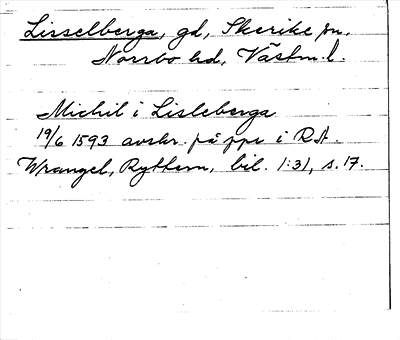 Lisselberga, gd, Skerike sn,
Norrbo hd, Västm. l.
Michil i Lisleberga
19/6 1593 avskr. på ppr i RA.
Wrangel, Ryttern, bil. 1:31, s. 17.